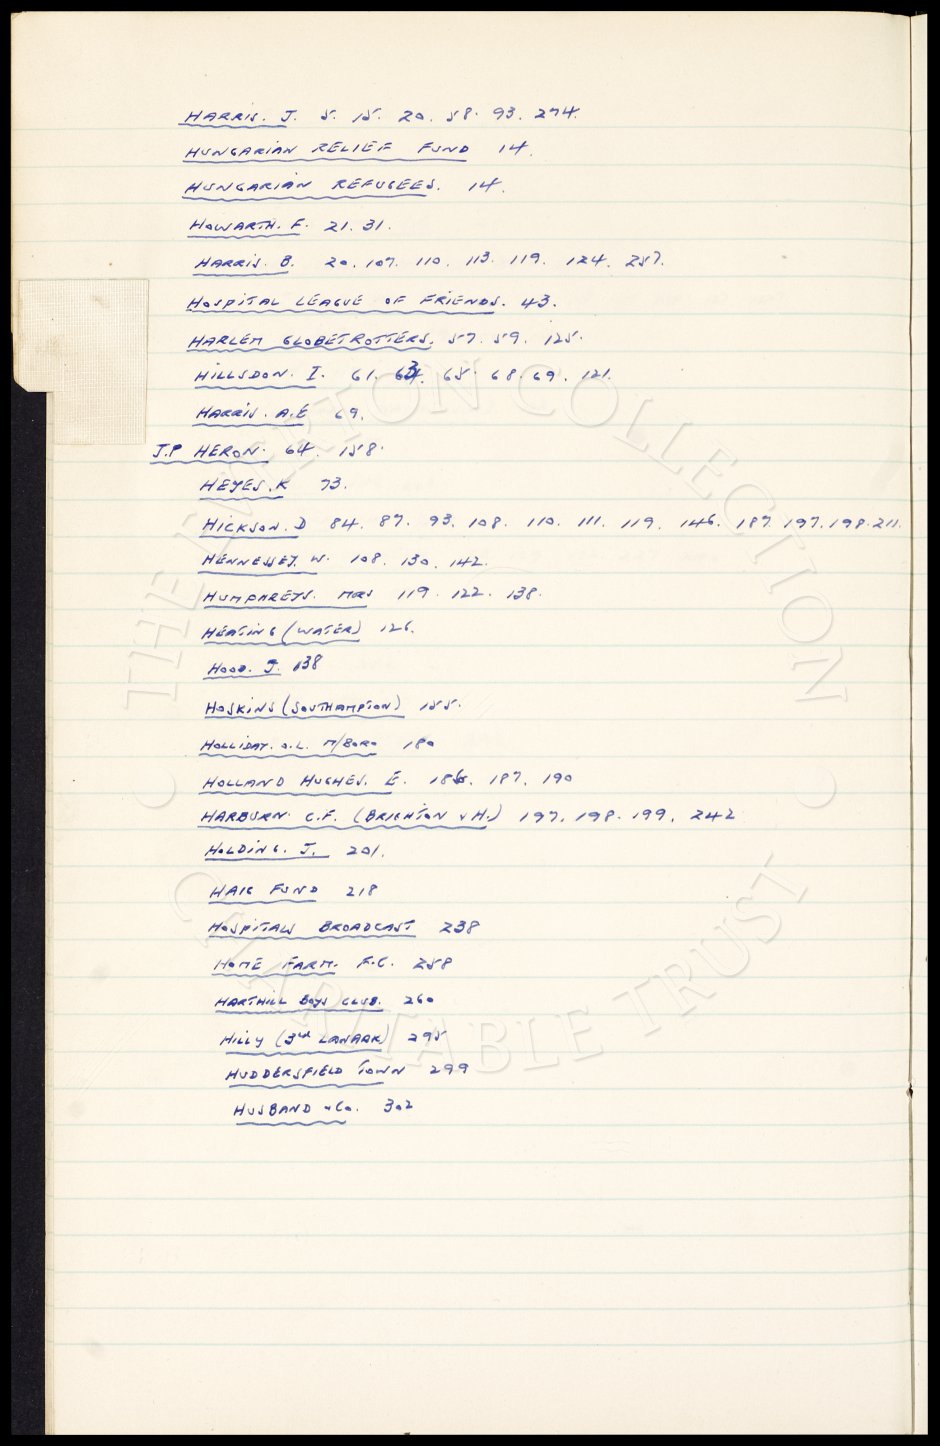 HARRIS. J. 5. 15. 20. 58. 93. 274.
HUNGARIAN RELIEF FUND 14.
HUNGARIAN REFUGEES. 14.
HOWARTH. F. 21. 31.
HARRIS. B. 20. 107. 110. 113. 119. 124. 257.
HOSPITAL LEAGUE OF FRIENDS. 43.
HARLEM GLOBETROTTERS. 57. 59. 125.
HILLSDON. I. 61. 63. 65. 68. 69. 121.
HARRIS. A.E 69.
J.P HERON. 64. 158.
HEYES. K 73.
HICKSON. D 84. 87. 93. 108. 110. 111. 119. 146. 187. 197. 198. 211.
HENNESSEY. W. 108. 130. 142.
HUMPHREYS. MRS 119. 122. 138.
HEATING (WATER) 126.
HOOD. J. 138
HOSKINS (SOUTHAMPTON) 155.
HOLLIDAY. O.L. M/BORO 180
HOLLAND HUGHES. E. 186. 187. 190
HARBURN. C.F. (BRIGHTON & H.) 197. 198. 199. 242
HOLDING. J. 201.
HAIG FUND 218
HOSPITALS BROADCAST 238
HOME FARM. F.C. 258
HARTHILL BOYS CLUB. 260
HILLY (3rd LANARK) 295
HUDDERSFIELD TOWN 299
HUSBAND & Co. 302
THE EVERTON COLLECTION
CHARITABLE TRUST